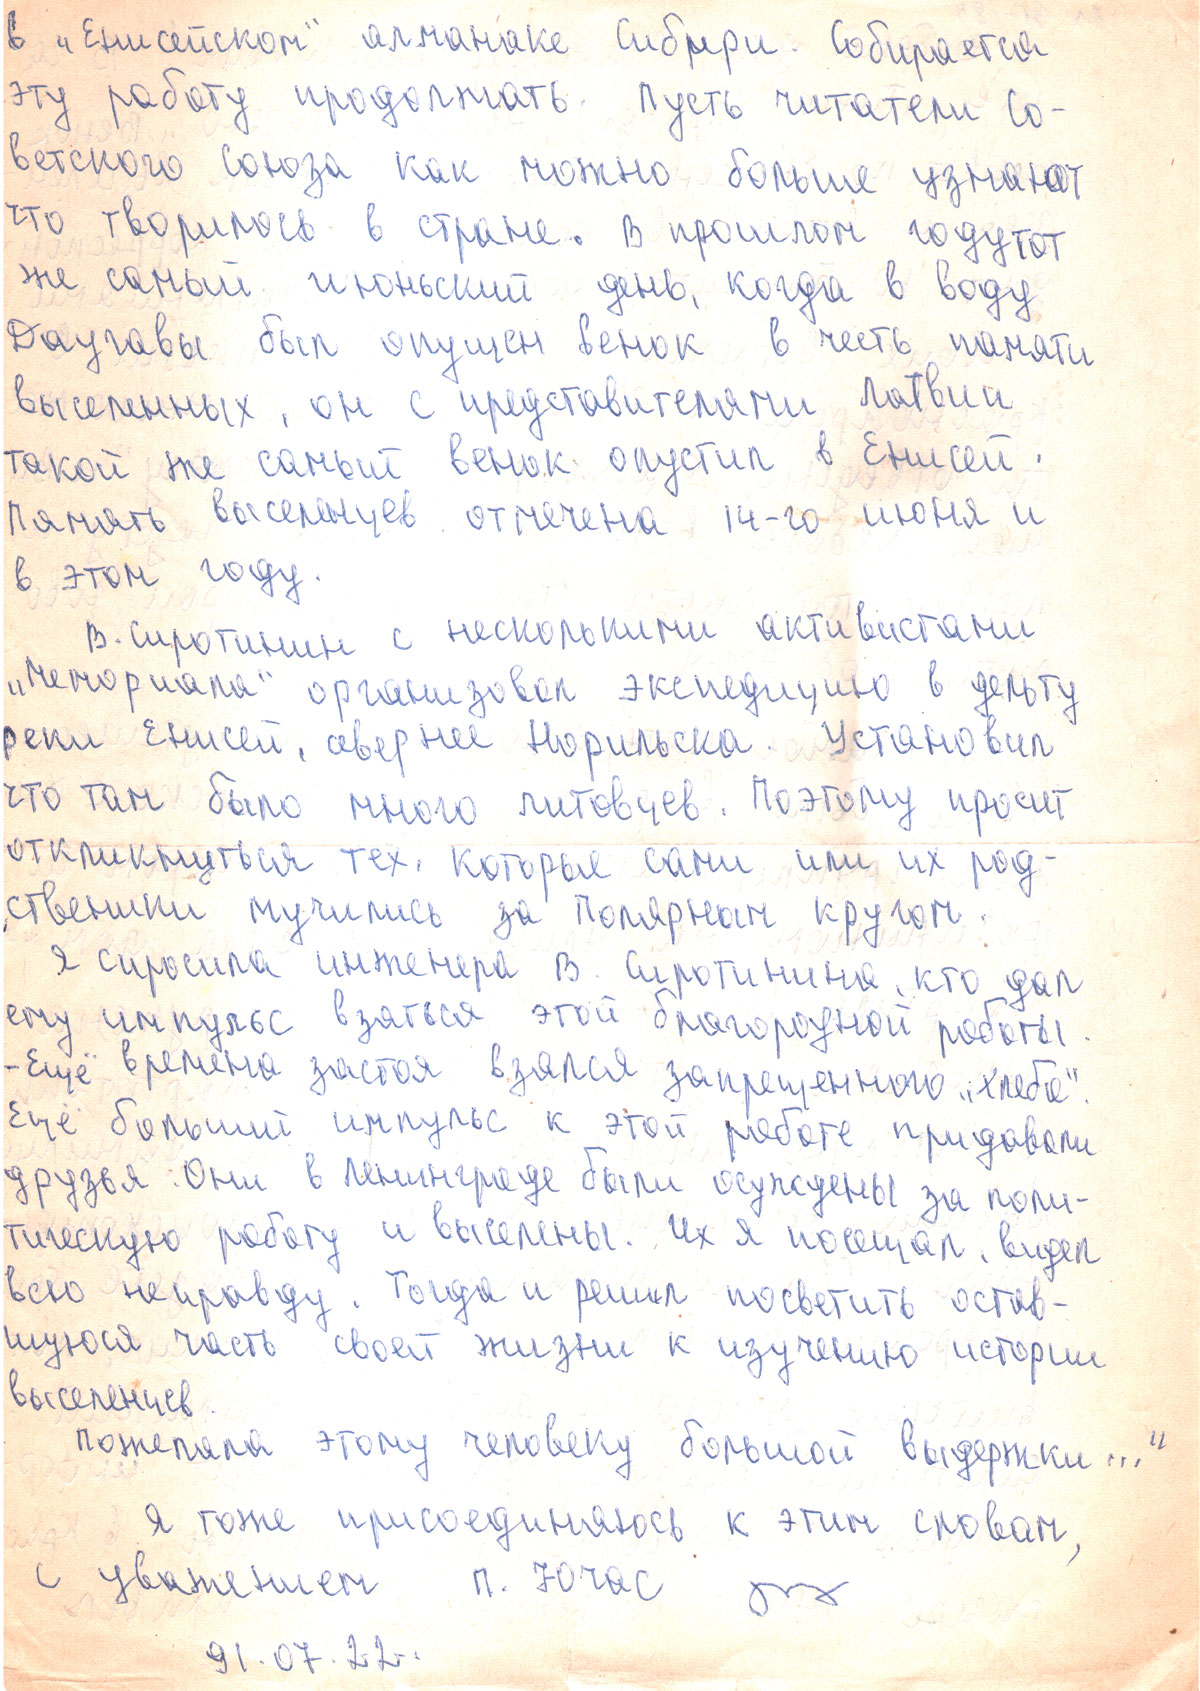 в „Енисейском" алманаке Сибири. Собирается
эту работу продолжать. Пусть читатели Со-
ветского Союза как можно больше узнают
что творилось в стране. В прошлом году тот
же самый июньский день, когда в воду
Даугавы был опущен венок в честь памяти
выселенных, он с представителями Латвии
такой же самый венок опустил в Енисей.
Память выселенцев отмечена 14-го июня и
в этом году.
В. Сиротинин с несколькими активистами
„Мемориала" организовал экспедицию в дельту
реки Енисей, севернее Норильска. Установил
что там было много литовцев. Поэтому просит
откликнуться тех, которые сами или их род-
ственики мучились за Полярным кругом.
Я спросила инженера В. Сиротинина, кто дал
ему импульс взяться этой благородной работы.
-Ещё времена застоя взялся запрещенного „хлеба".
Ещё больший импульс к этой работе придавали
друзья. Они в Ленинграде были осуждены за поли-
тическую работу и выселены. Их я посещал, видел
всю неправду. Тогда и решил посветить остав-
шуюся часть своей жизни к изучению истории
выселенцев.
Пожелала этому человеку большой выдержки..."
Я тоже присоединяюсь к этим словам,
с уважением П. Юче
91.07.22.